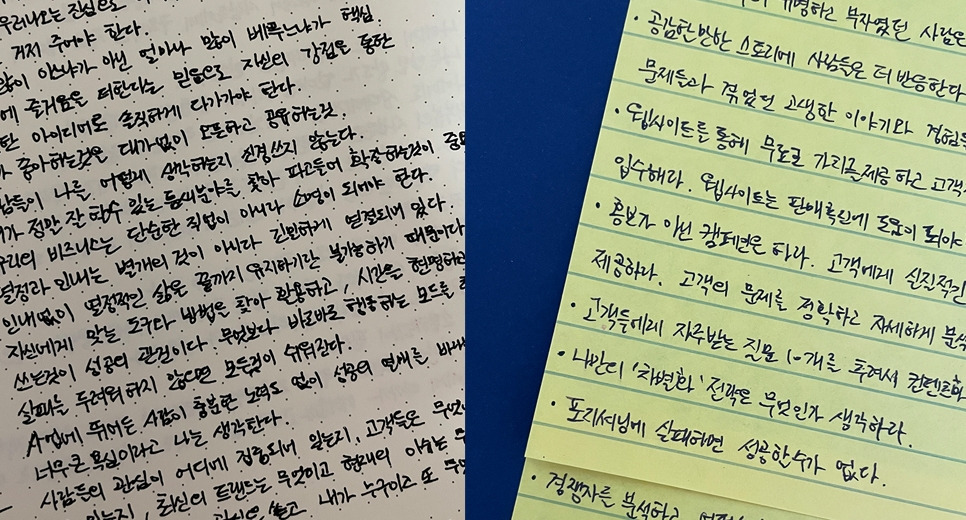 우러나오는 진심으로
거저 주어야 한다.
많이 아느냐가 아닌 얼마나 많이 베푸느냐가 핵심
에 즐거움을 더한다는 믿음으로 자신의 강점을 통한
한 아이디어로 솔직하게 다가가야 한다.
가 좋아하는것은 대가없이 오픈하고 공유하는것.
람들이 나를 어떻게 생각하는지 신경쓰지 않는다.
가 정말 잘 할수 있는 틈새분야를 찾아 파고들어 확장하는것이 중요
우리의 비즈니스는 단순한 직업이 아니라 소명이 되어야 한다.
열정과 인내는 별개의 것이 아니라 긴밀하게 연결되어 있다.
인내없이 열정적인 삶을 끝까지 유지하기란 불가능하기 때문이다
자신에게 맞는 도구나 방법을 찾아 활용하고, 시간을 현명하게
쓰는것이 성공의 관건이다. 무엇보다 바로바로 행동하는 모드를
실패를 두려워하지 않으면 모든것이 쉬워진다.
사업에 뛰어든 사람이 충분한 노력도 없이 성공의 열매를 바라
너무큰 욕심이라고 나는 생각한다.
사람들의 관심이 어디에 집중되어 있는지, 고객들은 무엇
있는지, 최신의 트렌드는 무엇이고 현재의 이슈는
내가 누구이고 또
유명하고 부자였던 사람은
· 공감할만한 스토리에 사람들은 더 반응한다
문제들과 겪었던 고생한 이야기와 경험
· 웹사이트를 통해 무료로 가치를제공 하고 고객
입수해라. 웹사이트는 판매촉진에 도움이 되어야
· 홍보가 아닌 캠페인을 하라. 고객에게 실질적인
제공하라. 고객의 문제를 정확하고 자세하게 분석
· 고객들에게 자주받는 질문 10개를 추려서 컨텐츠화
· 나만의 '차별화' 전략은 무엇인가 생각하라.
· 포지셔닝에 실패하면 성공할수가 없다.
· 경쟁자를 분석하고